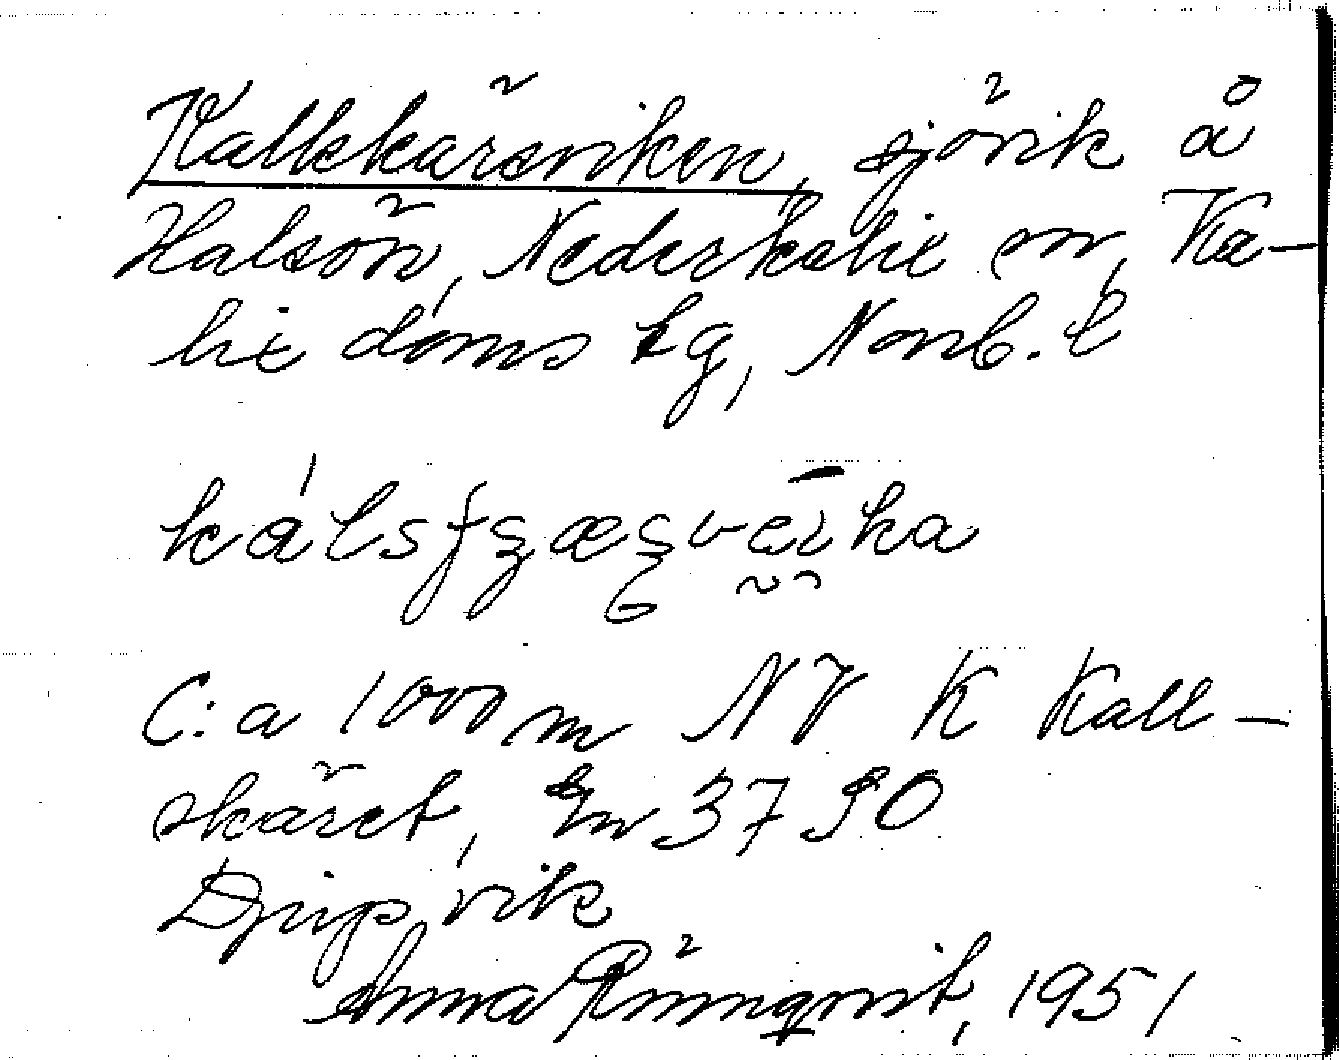 Kallskärsviken, sjövik å
Halsön, Nederkalix sn, Ka-
lix doms tg, Norrb. l
C:a 1000 m NV K Kall-
skäret, Gn 3790
Djup vik
Anna Rönnqvist, 1951